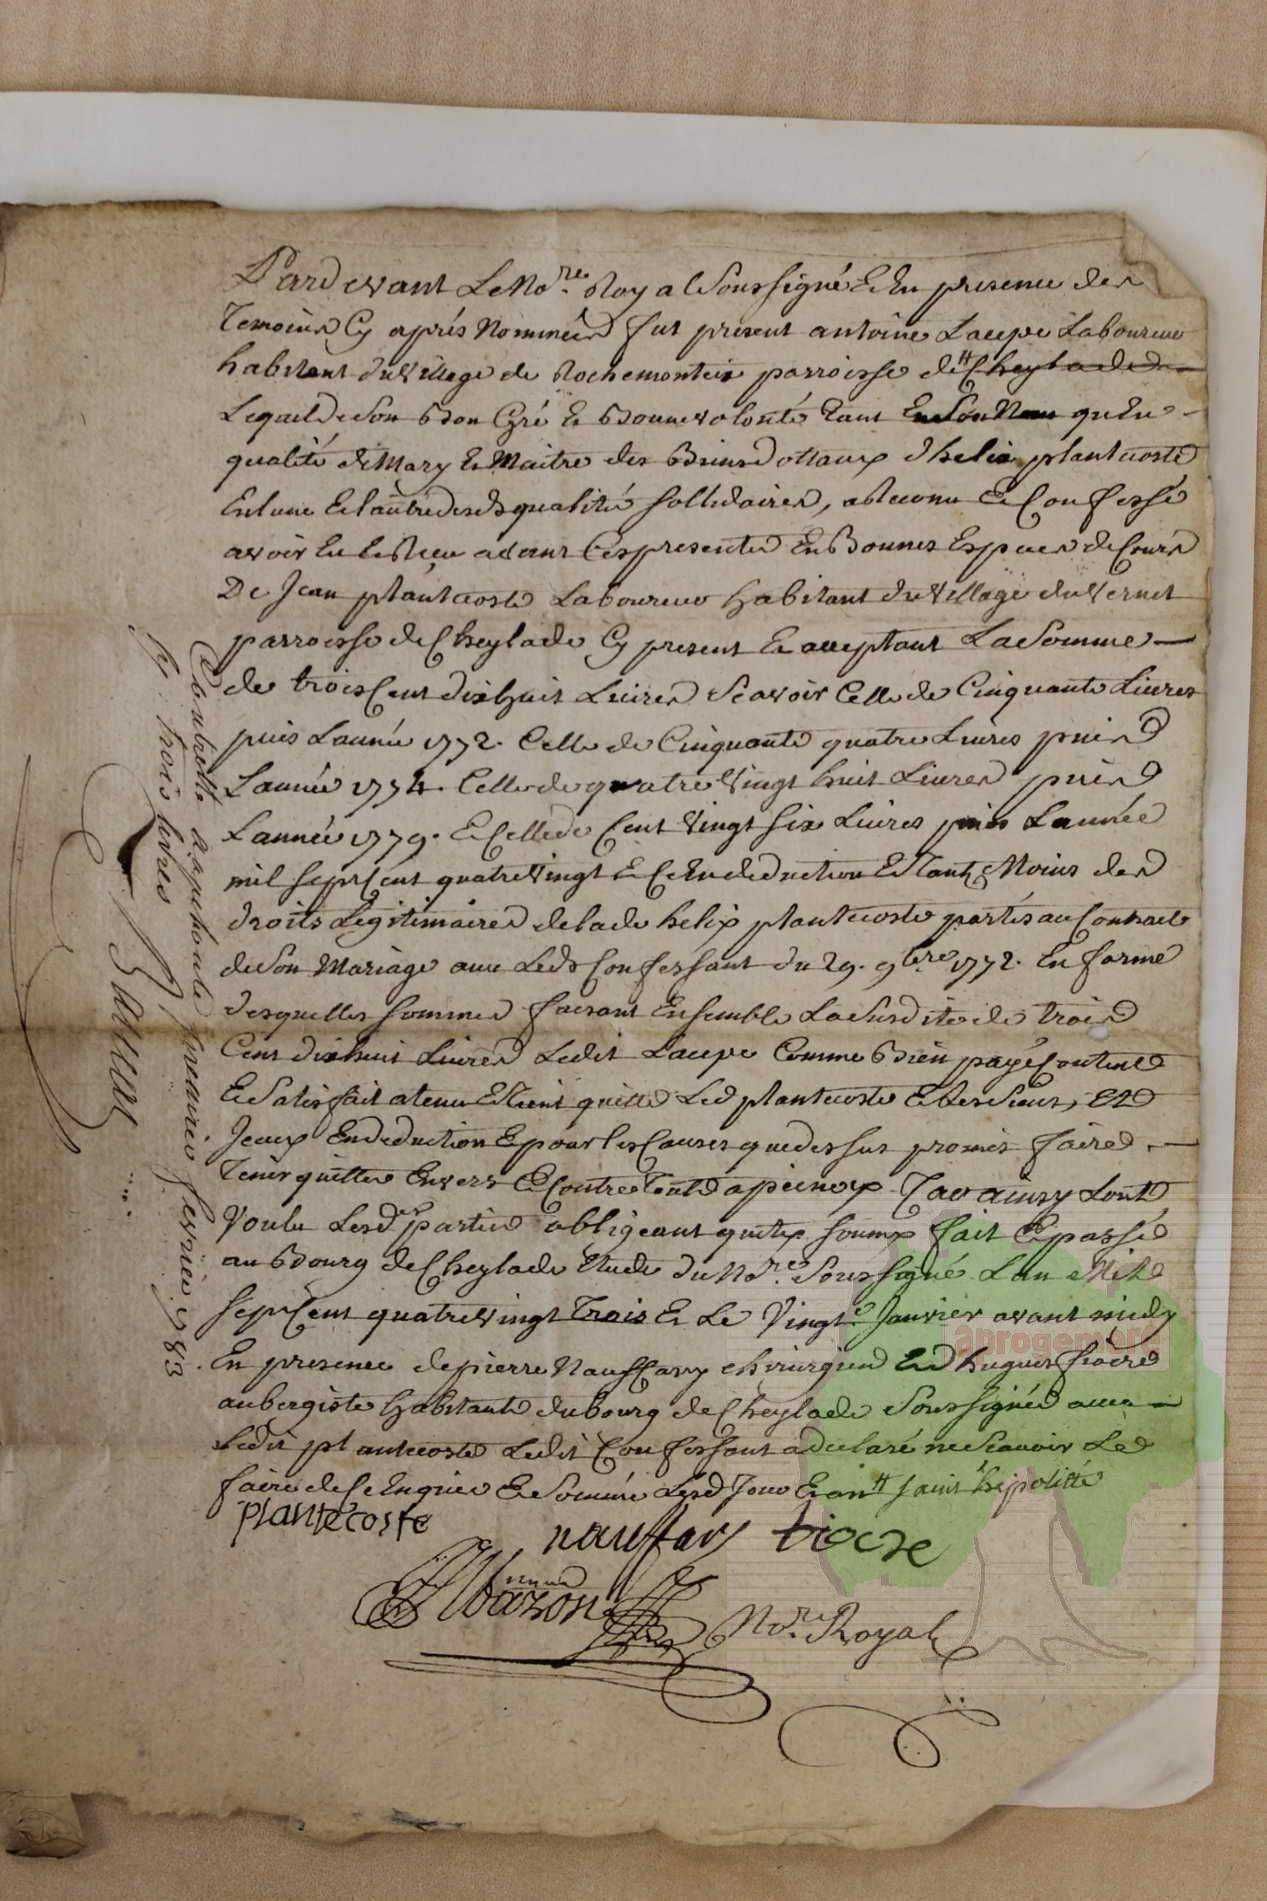 Pardevant Le No.re Royal Soussigné Et En presence des
Temoins Cy aprés Nommées fut present antoine Laupe Laboureur
habitant du village de Rochemonteix parroisse de # Cheylade
Lequel de Son Bon Gré Et Bonne volonté tant En Son Nom qu'En
qualité de Mary Et Maitre des Biens Dottaux d'helix plantecoste
En lune Et lautre desds qualités sollidaires, a Reconu Et Confessé
avoir Eu Et Reçu avant Ces presentes En Bonnes Especes de Cours
De Jean plantecoste Laboureur habitant du village du vernet
parroisse de Cheylade Cy present Et acceptant La Somme
de trois Cent dixhuit Livres Scavoir Celle de Cinquante Livres
puis Lannée 1772. Celle de Cinquante quatre Livres puis
Lannée 1774. Celle de quatre vingt huit Livres puis
Lannée 1779. Et Celle de Cent vingt six Livres puis Lannée
mil sept Cent quatre vingt Et Ce En deduction Et tant Moins des
droits Legitimaires de lade helix plantecoste portés au Contract
de Son Mariage avec Ledt Confessant du 29. 9bre 1772. En forme
desquelles sommes faisant Ensemble La Susdite de trois
Cent dixhuit Livres Ledit Laupe Comme Bien payé Contant
Et Satisfait a tenu Et tient quitte Led plantecoste Et Les Siens, Et
Jceux En deduction Et pour les Causes que dessus promis faire
Tenir quitte Envers Et Contre touts a peine Car ainsy Lont
Voulu Lesd parties obligeant fait Et passé
au Bourg de Cheylade Etude du No.re Soussigné Lan Mil
sept Cent quatre vingt Trois Et Le Vingt Janvier avant midy
En presence de pierre Nauffary chirurgien Et d'hugues fiocre
aubergiste habitants du bourg de Cheylade Soussignés avec
Ledit plantecoste Ledit Confessant a declaré ne Scavoir Le
faire de Ce Enquis Et Sommé Lesd Jour Et an # saint hipolitte
plantecoste
nauffary fiocre
Albazon No.re Royal
Controllé a apchon le fevrier 1783
Rt trois livres
abrogement